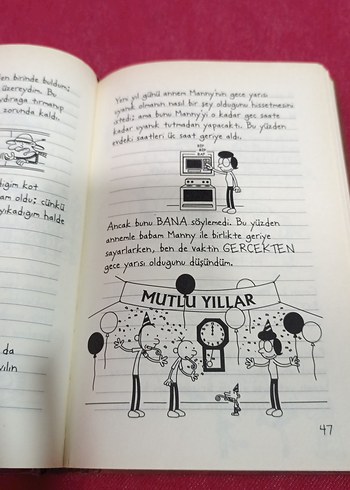 en birinde buldum;
üzereydim. Bu
ydıraga tırmanıp
zorunda kaldı.
digim kot
am oldu; cünkü
yıkadıgım halde
da
vılın
Yeni yıl günü annem Manny'nin gece yarısı
uyanık olmanın nasıl bir sey oldugunu hissetmesini
istedi ama bunu Manny'yi o kadar gec saate
kadar uyanık tutmadan yapacaktı. Bu yüzden
evdeki saatleri üc saat geriye aldı.
BİP
BİP
BİP
Ancak bunu BANA söylemedi. Bu yüzden
annemle babam Manny ile birlikte geriye
sayarlarken, ben de vaktin GERCEKTEN
gece yarısı oldugunu düsündüm.
MUTLU YILLAR
47